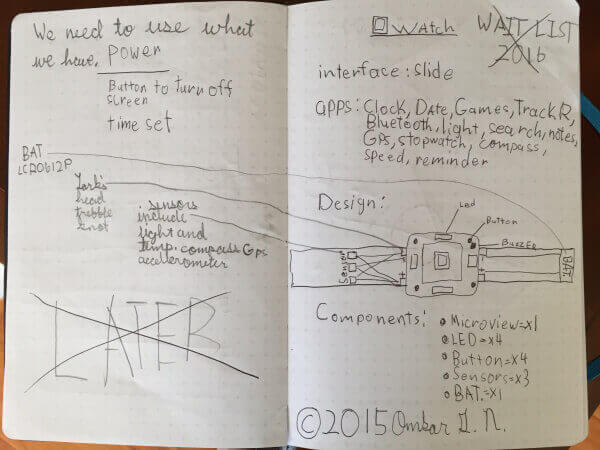 We need to use what
we have. Power
Button to turn off
screen
time set
BAT
LCR0612P
Turk's
head
trebble
knot
. sensors
include
light and
temp. compass GPS
accellerometer
LATER
WAtch
WAIT LIST
2016
interface: Slide
apps: Clock, Date, Games, Track R,
Bluetooth, light, search, notes,
GPS, stopwatch, compass,
speed, reminder
Design:
Led
Button
BuzzEr
Sensor
BAT.
Components:
Microview=x1
LED=x4
Button=x4
Sensors=x3
BAT.=x1
©2015 Omkar I. N.